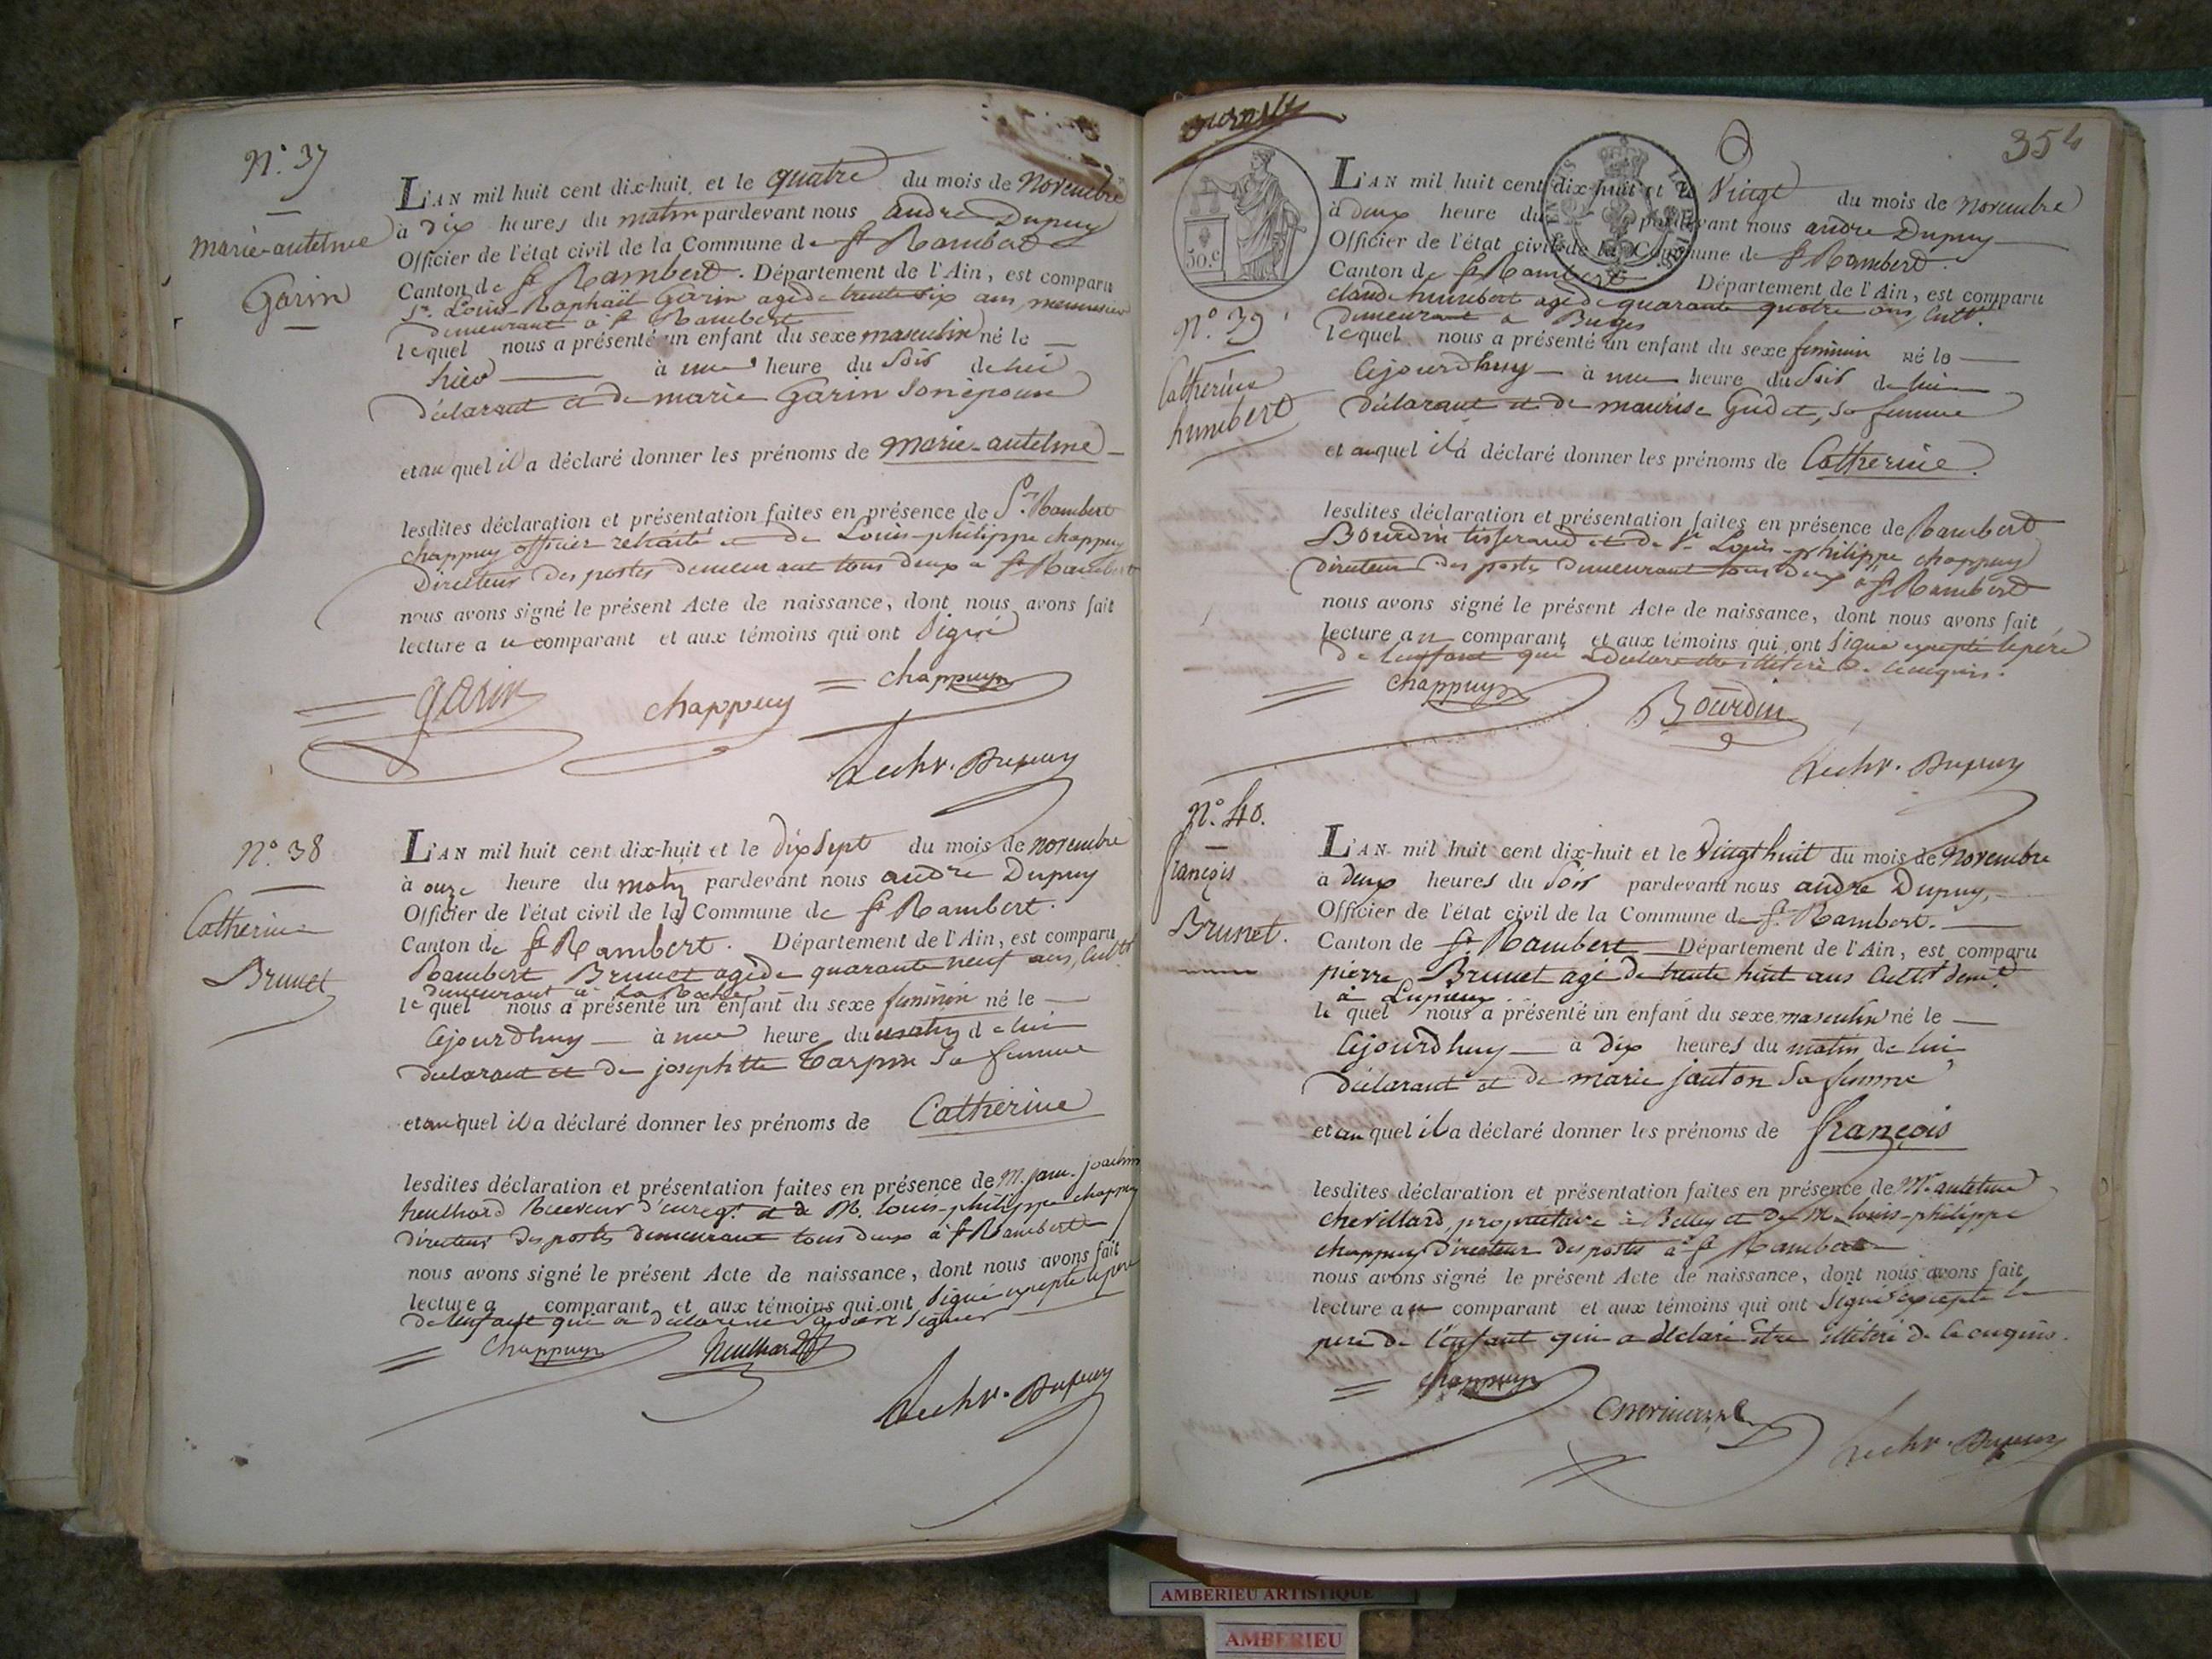 N.° 37
Marie-antelme
Garin
L'AN mil huit cent dix-huit, et le quatre du mois de Novembre
à Dix heures du matin pardevant nous andre Dupuy
Officier de l'état civil de la Commune de St Rambert
Canton de St Rambert. Département de l'Ain, est comparu
Sr. Louis-Raphaël Garin agé de trente six ans, menuisier
demeurant à St Rambert
lequel nous a présenté un enfant du sexe masculin né le
hier à une heure du Soir de lui
déclarant et de marie Garin Son épouse
et au quel il a déclaré donner les prénoms de Marie-antelme
lesdites déclaration et présentation faites en présence de Sr. Rambert
Chappuy officier retraité et de Louis-philippe chappuy
Directeur Des postes demeurant tous deux a St Rambert
nous avons signé le présent Acte de naissance, dont nous avons fait
lecture a u comparant et aux témoins qui ont Signé
garin chappuy chappuy
Dupuy
N.° 38
Catherine
Brunet
L'AN mil huit cent dix-huit et le dix Sept du mois de novembre
à onze heure du matin pardevant nous andre Dupuy
Officier de l'état civil de la Commune de St Rambert.
Canton de St Rambert. Département de l'Ain, est comparu
Rambert Brunet agé de quarante neuf ans, Cultr
demeurant à
le quel nous a présenté un enfant du sexe feminin né le
Cejourdhuy à une heure du matin de lui
déclarant et de josephtte Tarpin Sa femme
et au quel il a déclaré donner les prénoms de Catherine
lesdites déclaration et présentation faites en présence de M. joachim
heulhard Receveur d'enregt. et de M. louis-philippe chappuy
directeur Des postes demeurant tous deux à St Rambert
nous avons signé le présent Acte de naissance, dont nous avons fait
lecture a comparant et aux témoins qui ont Signé excepté le pere
de lenfant qui a declaré ne Savoir Signer
Chappuy heulhard
Dupuy
354
50.c
N.° 39
Catherine
humbert
L'AN mil huit cent dix-huit et le Vingt du mois de novembre
à deux heure du pardevant nous andre Dupuy
Officier de l'état civil de la Commune de St Rambert.
Canton de St Rambert Département de l'Ain, est comparu
claude humbert agé de quarante quatre ans, Cultr.
demeurant a Buges
lequel nous a présenté un enfant du sexe feminin né le
Cejourdhuy à une heure du Soir de lui
déclarant et de maurise Gudet, Sa femme
et au quel il a déclaré donner les prénoms de Catherine.
lesdites déclaration et présentation faites en présence de Rambert
Bourdin tisserand et de Sr Louis-philippe chappuy
directeur des postes Demeurant tous deux a St Rambert
nous avons signé le présent Acte de naissance, dont nous avons fait
lecture au comparant et aux témoins qui ont Signé excepté le père
de lenfant qui a declaré etre illitéré de ce enquis.
chappuy Bourdin
Dupuy
N.° 40.
françois
Brunet.
L'AN mil huit cent dix-huit et le Vingt huit du mois de Novembre
à deux heures du Soir pardevant nous andre Dupuy,
Officier de l'état civil de la Commune de St. Rambert.
Canton de St. Rambert Département de l'Ain, est comparu
pierre Brunet agé de trente huit ans Cultr demt.
à Lupieux.
le quel nous a présenté un enfant du sexe masculin né le
Cejourdhuy à Dix heures du matin de lui
déclarant et de marie janton Sa femme
et au quel il a déclaré donner les prénoms de françois
lesdites déclaration et présentation faites en présence de Mr. antelme
chevillard, propriétaire à Belley et de M. louis-philippe
chappuy Directeur des postes à St Rambert
nous avons signé le présent Acte de naissance, dont nous avons fait
lecture au comparant et aux témoins qui ont Signé excepté le
pere de l'enfant qui a déclaré être illitéré de ce enquis.
chappuy
Dupuy
AMBERIEU ARTISTIQUE
AMBERIEU